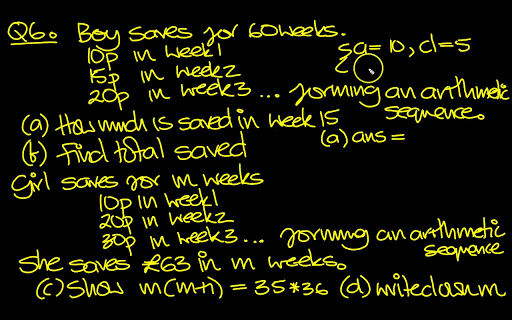 Q6. Boy saves for 60 weeks.
10p in week 1
15p in week 2
20p in week 3 ... forming an arithmetic sequence.
a = 10, d = 5
(a) How much is saved in week 15
(a) ans =
(b) Find total saved
Girl saves for m weeks
10p in week 1
20p in week 2
30p in week 3 ... forming an arithmetic sequence
She saves £63 in m weeks.
(c) Show m(m+1) = 35*36 (d) write down m